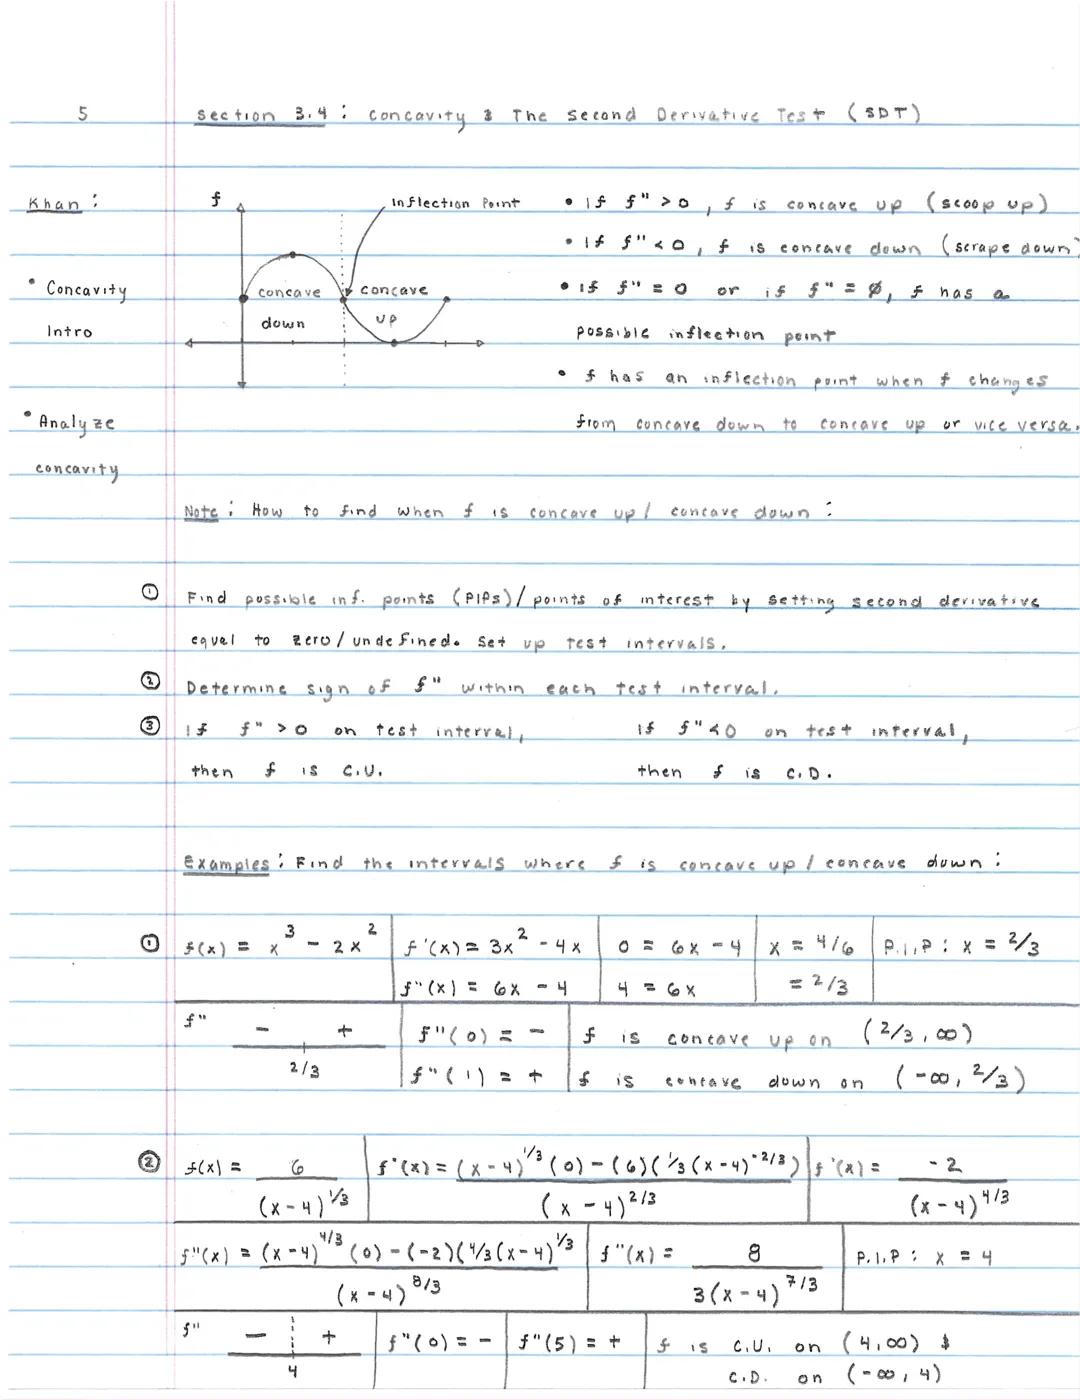 5 Section 3.4 : Concavity & The Second Derivative Test (SDT)
Khan :
• Concavity
Intro
• Analyze
concavity
f
Inflection Point
concave
down
concave
up
• If f" > 0 , f is concave up (scoop up)
• If f" < 0 , f is concave down (scrape down)
• If f" = 0 or if f" = ∅, f has a
possible inflection point
• f has an inflection point when f changes
from concave down to concave up or vice versa.
Note : How to find when f is concave up / concave down :
① Find possible inf. points (PIPs)/ points of interest by setting second derivative
equal to zero/undefined. Set up test intervals.
② Determine sign of f" within each test interval.
③ If f" > 0 on test interval, If f" < 0 on test interval,
then f is C.U. then f is C.D.
Examples : Find the intervals where f is concave up / concave down :
① f(x) = x³ - 2x² f'(x) = 3x² - 4x 0 = 6x - 4 x = 4/6 P.I.P : x = 2/3
f"(x) = 6x - 4 4 = 6x = 2/3
f" - + f"(0) = - f is concave up on (2/3, ∞)
2/3 f"(1) = + f is concave down on (-∞, 2/3)
② f(x) = 6 / (x-4)^1/3 f'(x) = (x-4)^1/3 (0) - (6)(1/3 (x-4)^-2/3) / (x-4)^2/3 f'(x) = -2 / (x-4)^4/3
f"(x) = (x-4)^4/3 (0) - (-2)(4/3 (x-4)^1/3 / (x-4)^8/3 f"(x) = 8 / 3(x-4)^7/3 P.I.P : x = 4
f" - + f"(0) = - f"(5) = + f is C.U. on (4,∞) &
4 C.D. on (-∞, 4)